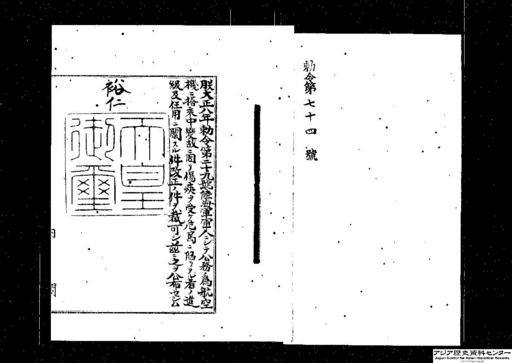 勅令第七十四號
朕大正八年勅令第三十九號陸海軍軍人ニシテ公務ノ爲航空
機ニ搭乘中變故ニ因リ傷痍ヲ受ケ危篤ニ陷リタル者ノ進
級及任用ニ關スル件改正ノ件ヲ裁可シ茲ニ之ヲ公布セシム
裕仁
天皇御璽
内閣
アジア歴史資料センター
Japan Center for Asian Historical Records